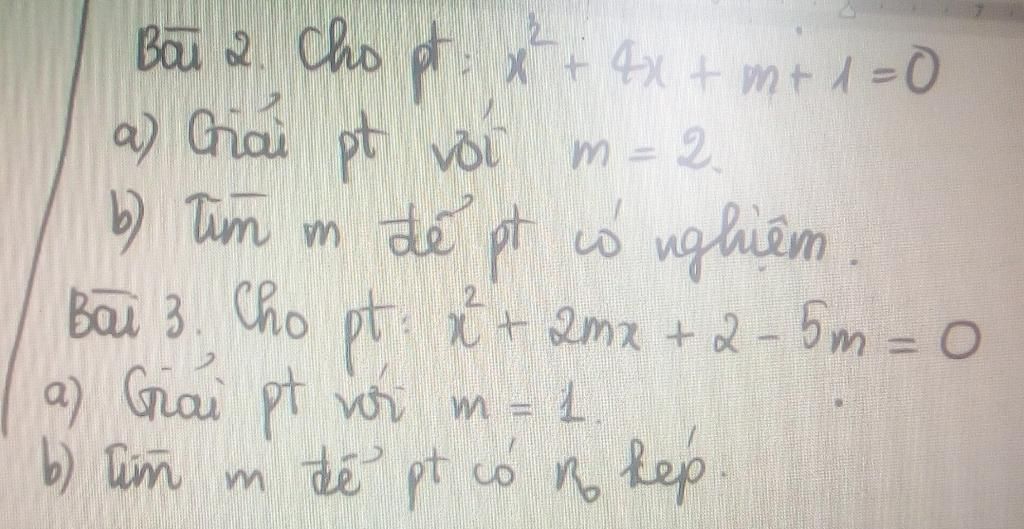 Bài 2. Cho pt: x² + 4x + m + 1 = 0
a) Giải pt với m = 2.
b) Tìm m để pt có nghiệm.
Bài 3. Cho pt: x² + 2mx + 2 - 5m = 0
a) Giải pt với m = 1.
b) Tìm m để pt có no kép.